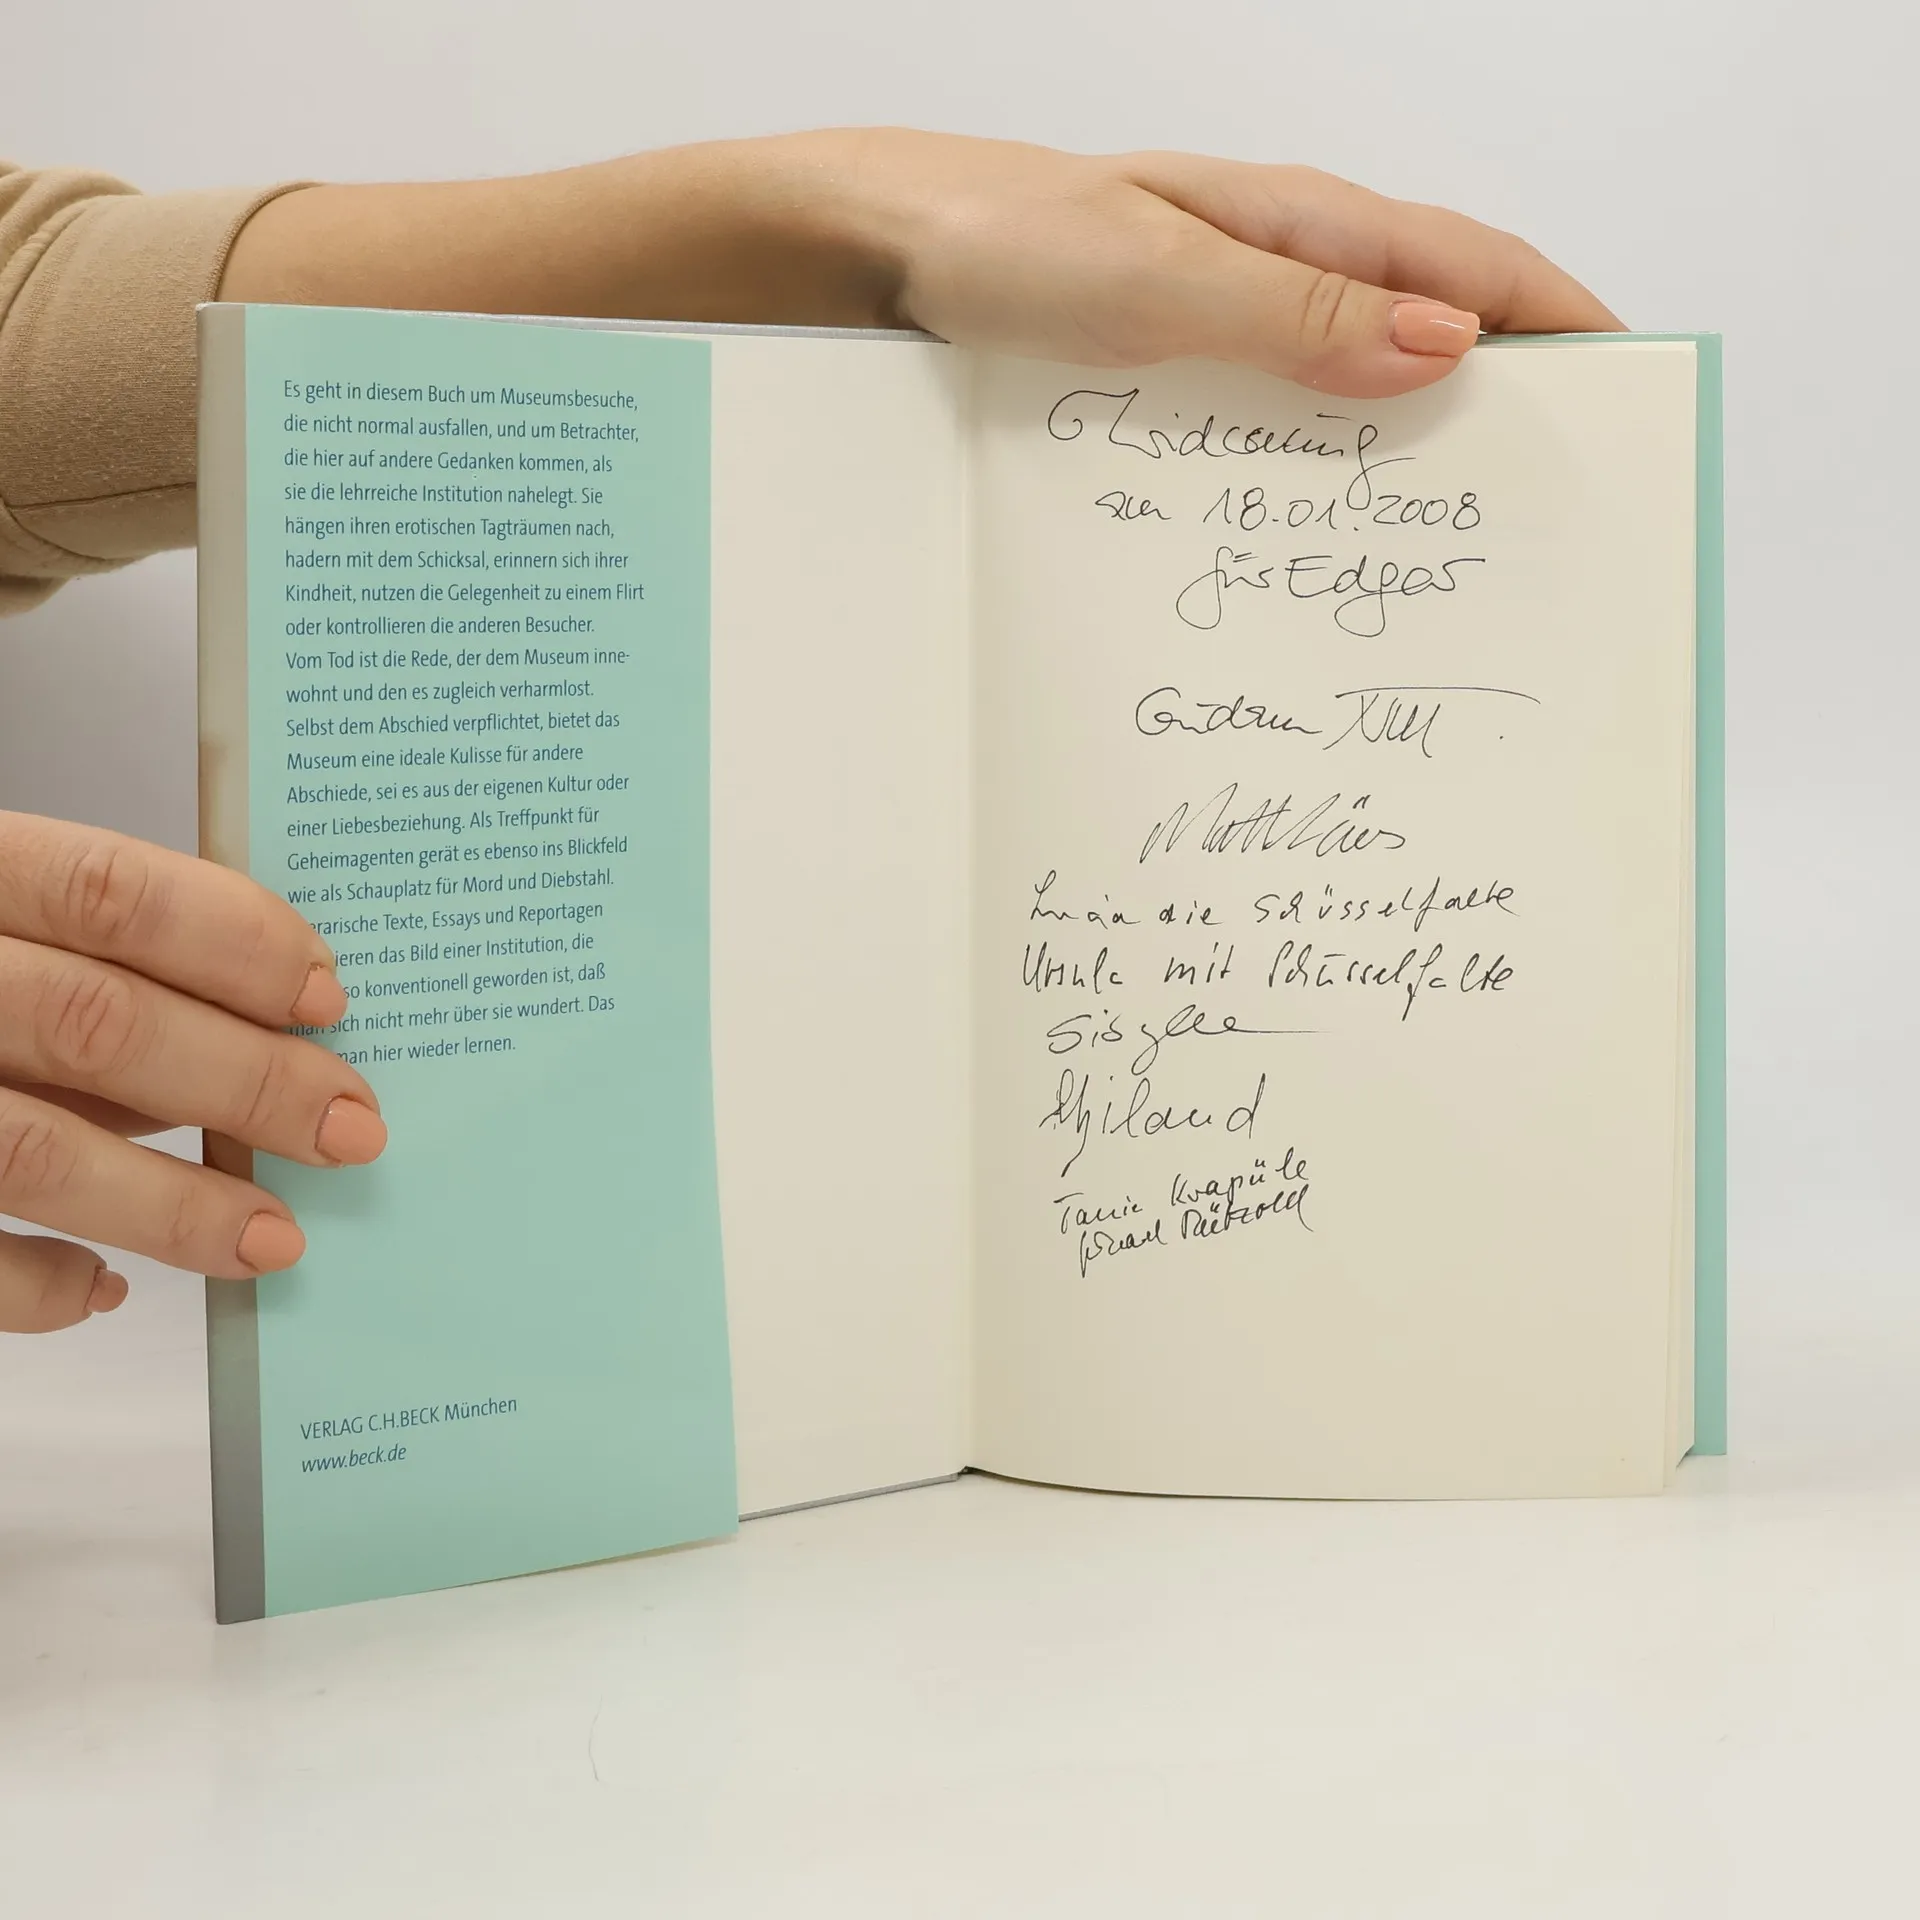 Es geht in diesem Buch um Museumsbesuche,
die nicht normal ausfallen, und um Betrachter,
die hier auf andere Gedanken kommen, als
sie die lehrreiche Institution nahelegt. Sie
hängen ihren erotischen Tagträumen nach,
hadern mit dem Schicksal, erinnern sich ihrer
Kindheit, nutzen die Gelegenheit zu einem Flirt
oder kontrollieren die anderen Besucher.
Vom Tod ist die Rede, der dem Museum inne-
wohnt und den es zugleich verharmlost.
Selbst dem Abschied verpflichtet, bietet das
Museum eine ideale Kulisse für andere
Abschiede, sei es aus der eigenen Kultur oder
einer Liebesbeziehung. Als Treffpunkt für
Geheimagenten gerät es ebenso ins Blickfeld
wie als Schauplatz für Mord und Diebstahl.
rarische Texte, Essays und Reportagen
ieren das Bild einer Institution, die
so konventionell geworden ist, daß
man sich nicht mehr über sie wundert. Das
man hier wieder lernen.
VERLAG C.H.BECK München
www.beck.de
Widmung
zum 18.01.2008
für Edgar
Gudrun
Matthäus
die Schüsselfalte
Ursula mit Schüsselfalte
Sibylle
Tanie Krapüle